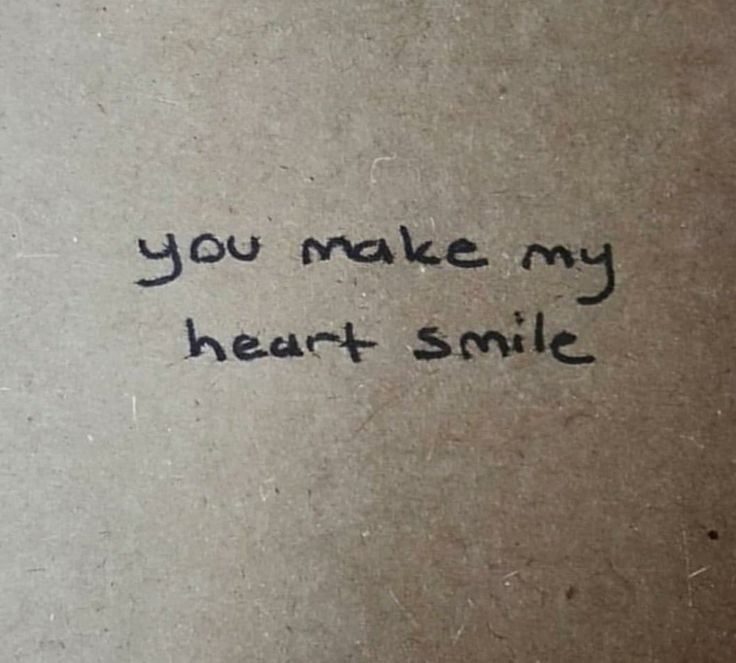 you make my
heart smile